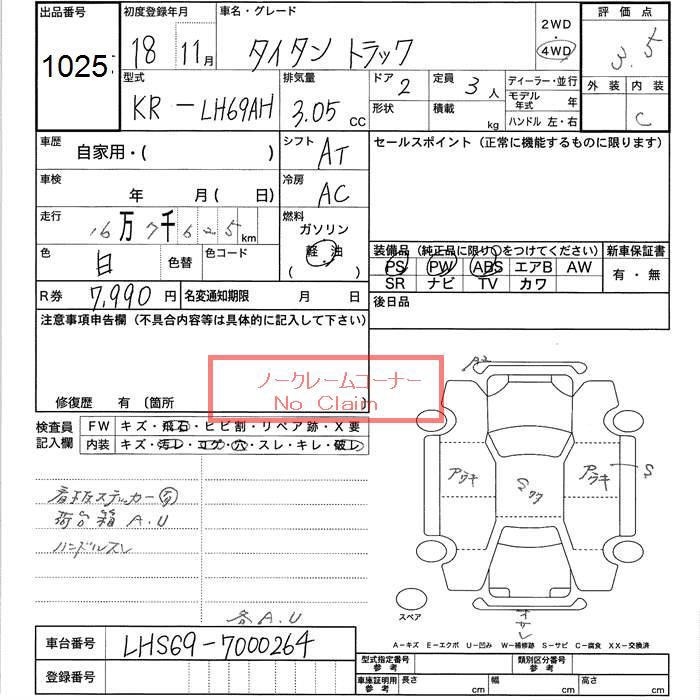 出品番号 初度登録年月 車名・グレード 2WD・4WD 評価点
1025 18年 11月 タイタン トラック 3.5
型式 排気量 ドア 2 定員 3人 ディーラー・並行 外装 内装
KR-LH69AH 3.05 CC 形状 積載 kg モデル年式 年 C
ハンドル 左・右
車歴 自家用・( ) シフト AT セールスポイント(正常に機能するものに限ります)
車検 年 月( 日) 冷房 AC
走行 16万7千625km 燃料 ガソリン 軽油 ( )
色 白 色替 色コード
装備品(純正品に限り○をつけてください) 新車保証書
PS PW ABS エアB AW 有・無
SR ナビ TV カワ
R券 7,990円 名変通知期限 月 日 後日品
注意事項申告欄(不具合内容等は具体的に記入して下さい)
ノークレームコーナー
No Claim
修復歴 有 〔箇所 〕
検査員記入欄 FW キズ・飛石・ヒビ割・リペア跡・X要
内装 キズ・汚レ・コゲ・穴・スレ・キレ・破レ
看板ステッカー
荷台箱 A.U
ハンドルスレ
各A.U
アウキ アウキ S
スペア
A-キズ E-エクボ U-凹み W-補修跡 S-サビ C-腐食 XX-交換済
車台番号 LHS69-7000264
型式指定番号 参考 類別区分番号 参考
登録番号 車庫証明用 参考 長さ cm 幅 cm 高さ cm